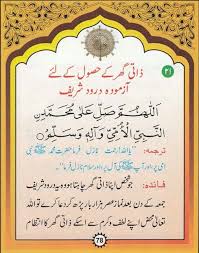 ۲۱
ذاتی گھر کے حصول کے لئے
آزمودہ درود شریف
اَللّٰهُمَّ صَلِّ عَلٰى مُحَمَّدِنِ
النَّبِيِّ الْاُمِّيِّ وَآلِهٖ وَسَلِّمْ
ترجمہ: "یا اللہ! رحمت نازل فرما حضرت محمد ﷺ نبی
امی پر اور آپ ﷺ کی آل پر اور سلام نازل فرما"۔
فائدہ: جو شخص اپنا ذاتی گھر چاہتا ہو وہ یہ درود شریف
جمعہ کے دن بعد نماز عصر ہزار بار پڑھ کر دعا کرے تو اللہ
تعالیٰ محض اپنے لطف و کرم سے اسکے ذاتی گھر کا انتظام
78